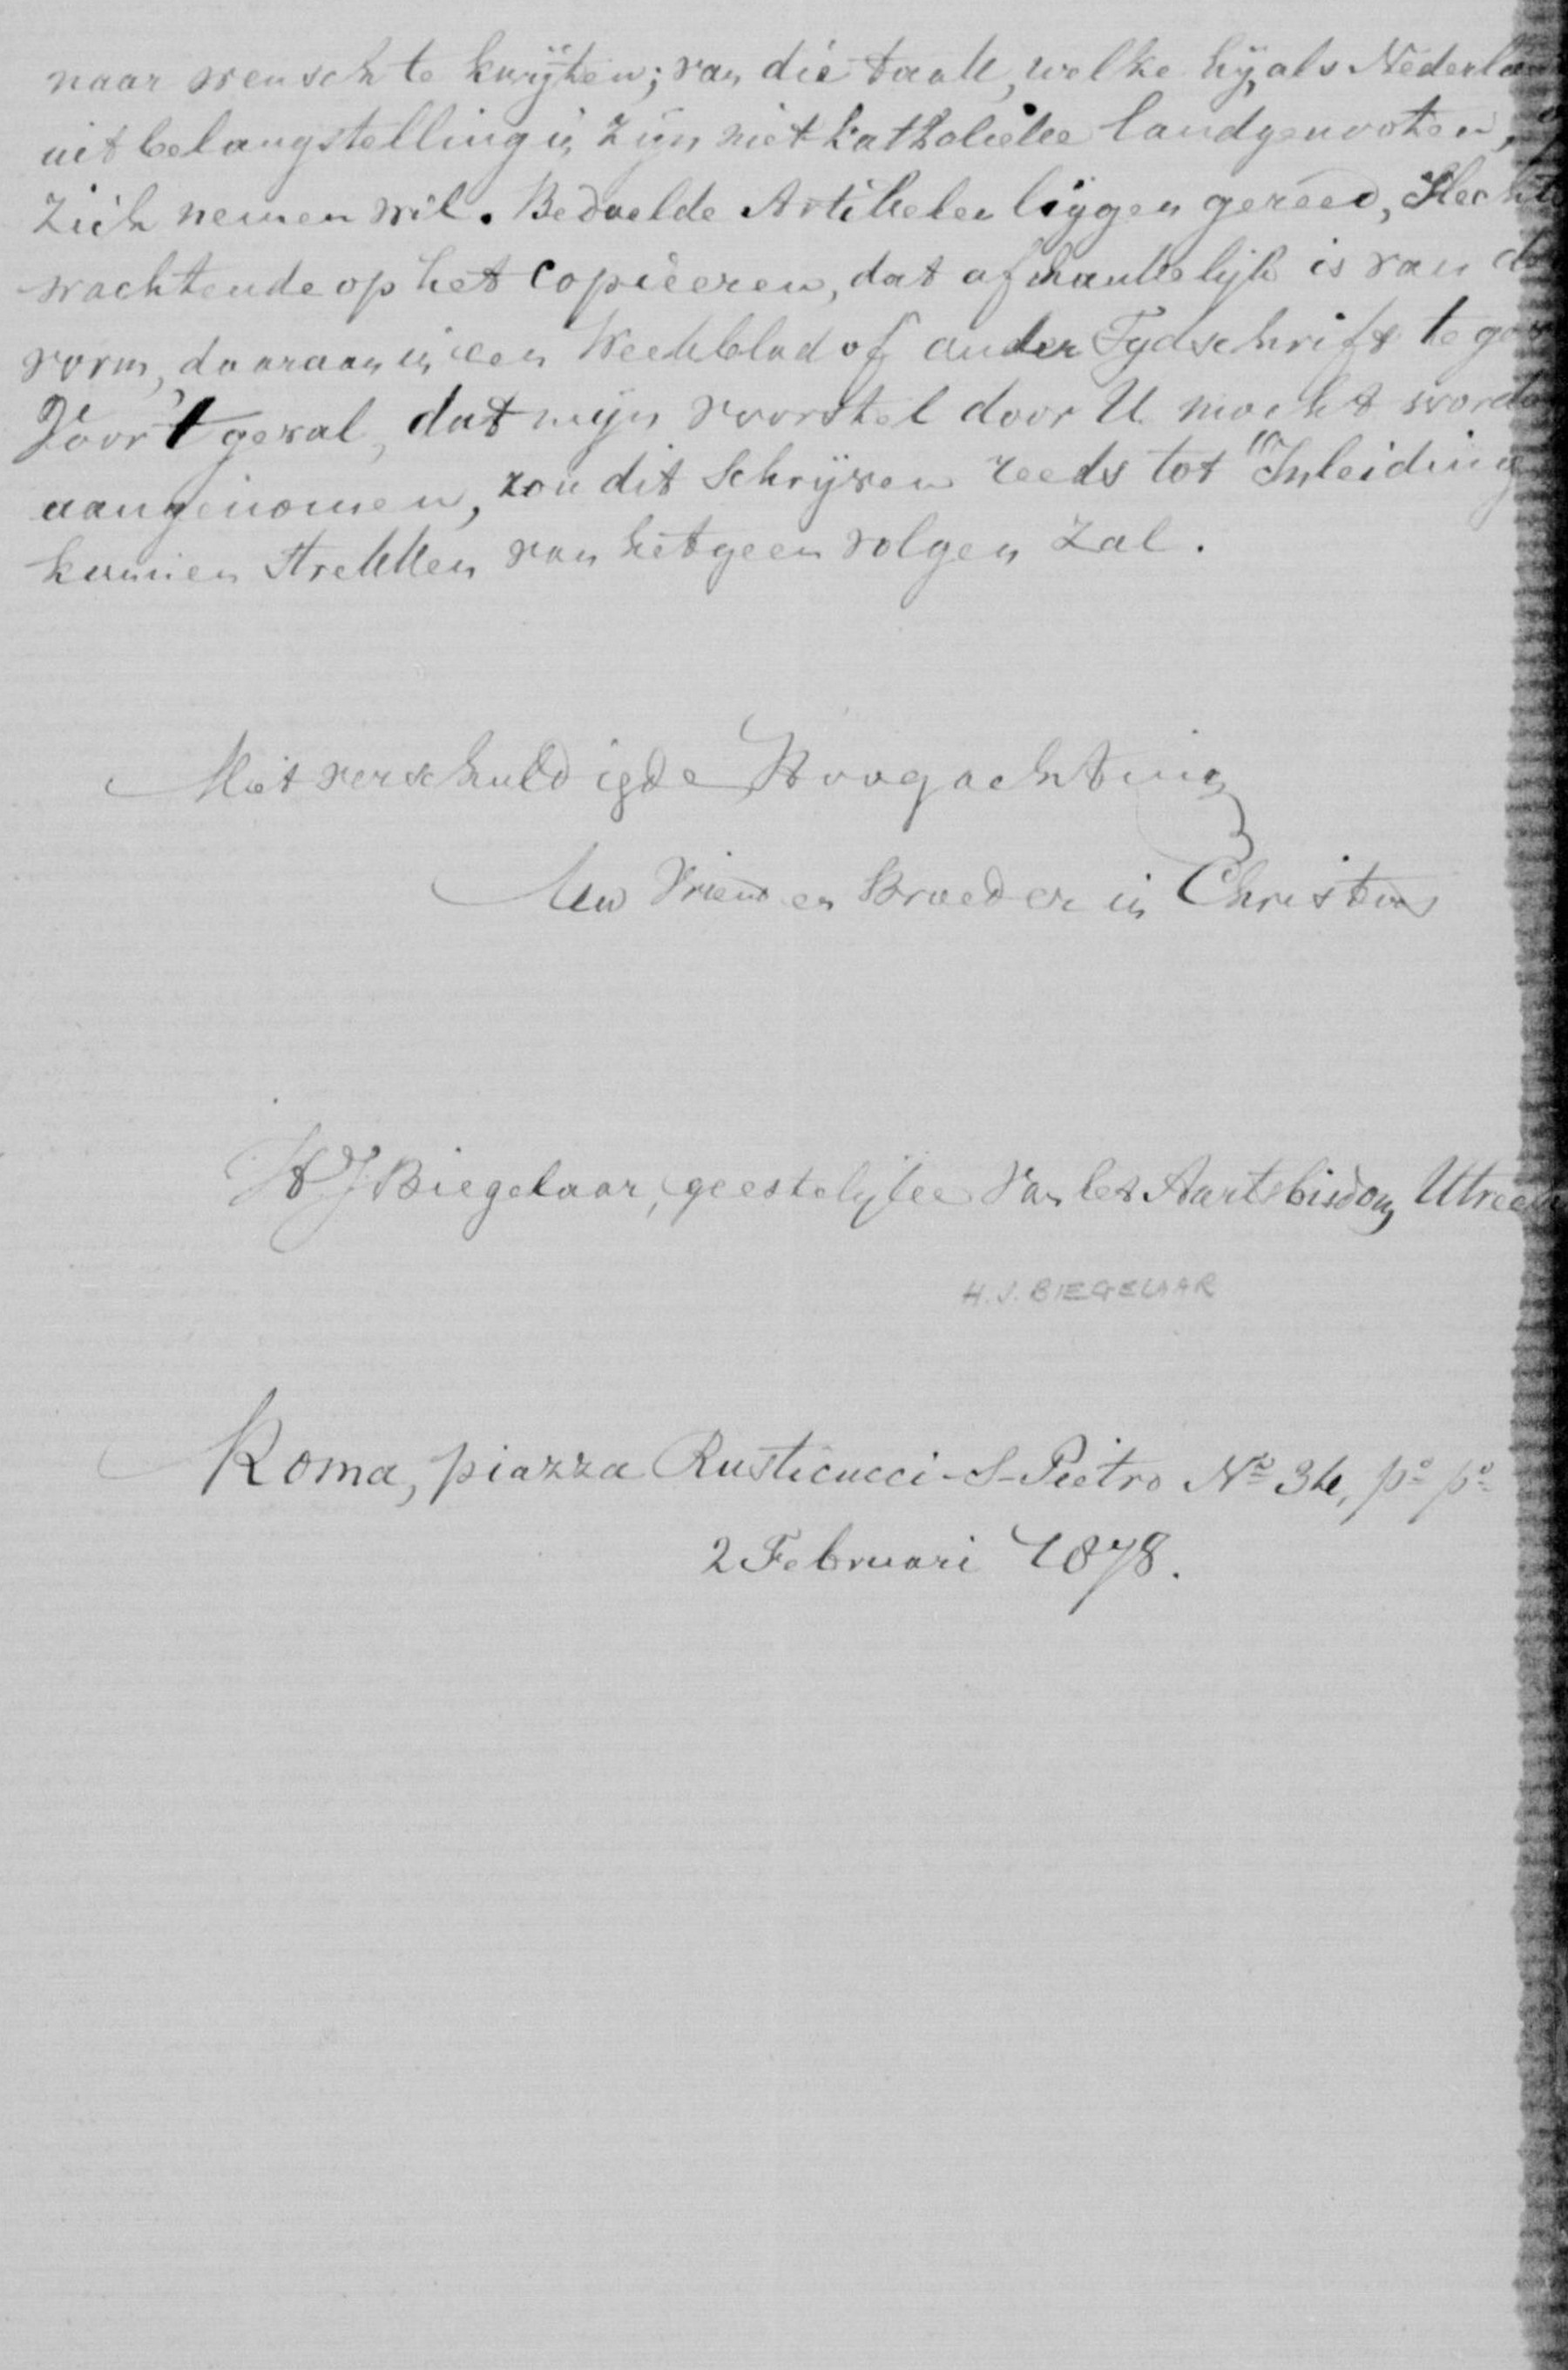 naar wensch te kwijten; van die taak, welke hij, als Nederlan
uit belangstelling in zijn niet katholieke landgenooten,
zich nemen wil. Bedoelde Artikelen liggen gereed, slechts
wachtende op het copiëeren, dat afhankelijk is van de
vorm, daaraan in een Weekblad of ander Tydschrift te gev
Voor 't geval, dat mijn voorstel door U mocht worde
aangenomen, zou dit schrijven reeds tot "Inleiding
kunnen strekken van hetgeen volgen zal.
Met verschuldigde Hoogachting
Uw Vriend en Broeder in Christus
H J Biegelaar, geestelyke van het Aartsbisdom Utrec
H. J. BIEGELAAR
Roma, piazza Rusticucci-S-Pietro No 34, po po
2 Februari 1878.